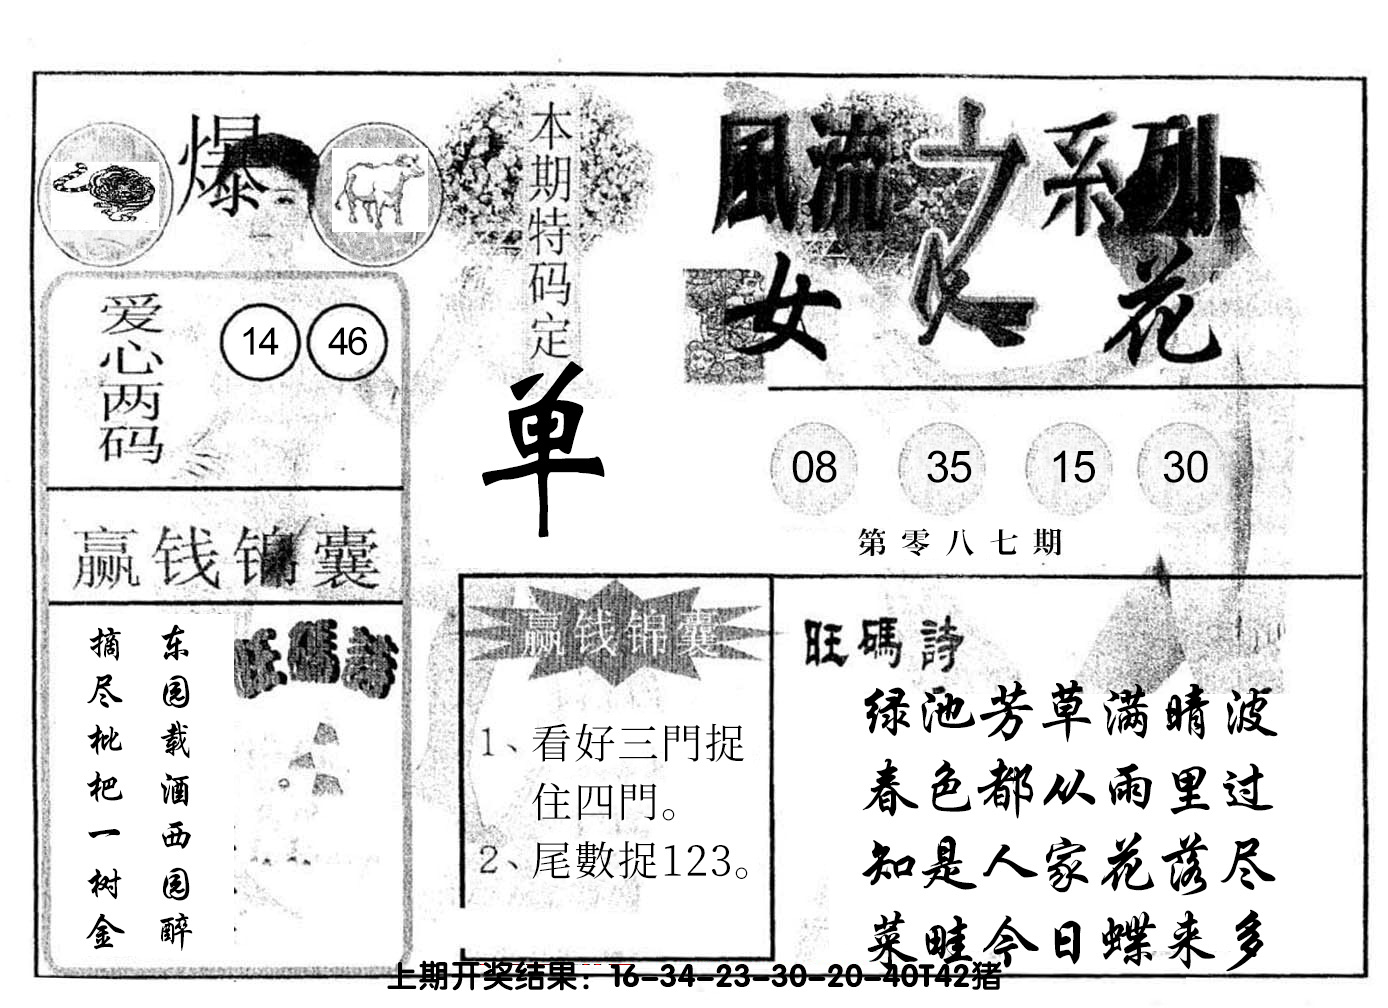 爆
本期特码定
单
風流之系列
女人花
爱心两码
14 46
08 35 15 30
第零八七期
赢钱锦囊
东园载酒西园醉
摘尽枇杷一树金
旺碼詩
赢钱锦囊
1、看好三門捉
住四門。
2、尾數捉123。
旺碼詩
绿池芳草满晴波
春色都从雨里过
知是人家花落尽
菜畦今日蝶来多
上期开奖结果：16-34-23-30-20-40T42猪